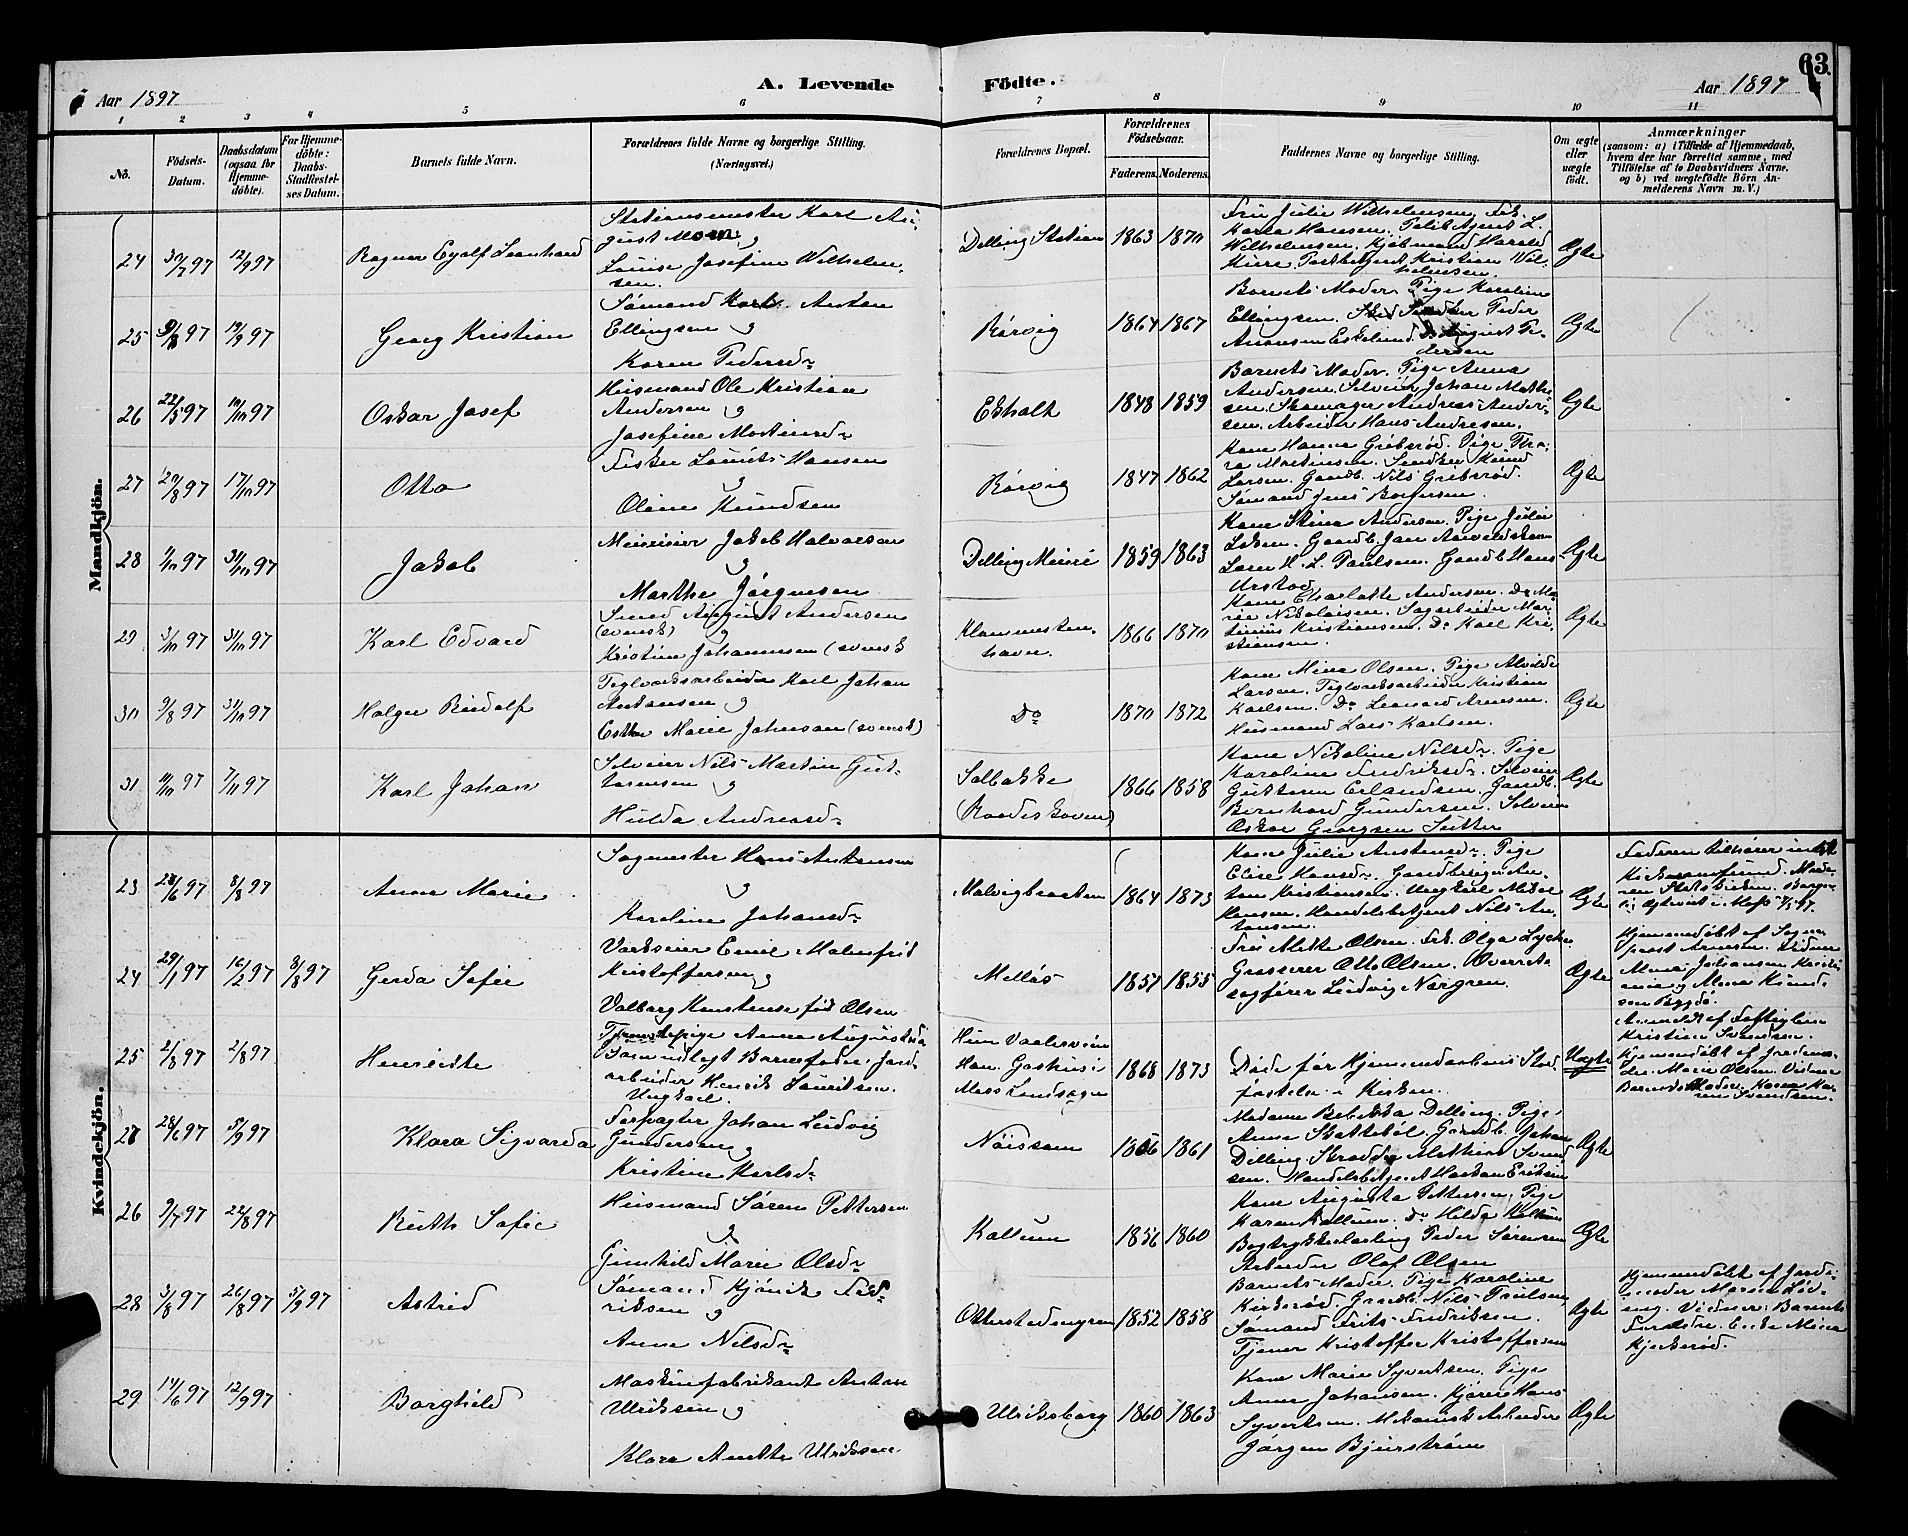 63
Aar 1897
A. Levende
Födte.
Aar 1897
1 2 3 4 5 6 7 8 9 10 11
No.
Födsels-
Datum.
Daabsdatum
(ogsaa for
Hjemme-
döbte).
For Hjemme-
döbte:
Daabs-
Stadfæstel-
ses Datum.
Barnets fulde Navn.
Forældrenes fulde Navne og borgerlige Stilling.
(Næringsvei.)
Forældrenes Bopæl.
Forældrenes
Födselsaar.
Faderens. Moderens.
Faddernes Navne og borgerlige Stilling.
Om ægte
eller
uægte
födt.
Anmærkninger
(saasom: a) i Tilfælde af Hjemmedaab,
hvem der har forrettet samme, med
Tilföielse af to Daabsvidners Navne,
og b) ved uægtefödte Börn An-
melderens Navn m. V.)
Mandkjön.
24 30/7 97 12/9 97 Ragnar Eyolf Leonhard
Stationsmester Karl Au-
gust Moen og
Louise Josefine Wilhelm-
sen.
Delling Station 1863 1870
Fru Julie Wilhelmsen, Frk.
Karla Hansen.
Wilhelmsen. Kjöbmand Harald
Kristian Wil-
helmsen.
Ægte
25 97 19/9 97 Georg Kristian
Sömand Karl Anton
Ellingsen og
Karen Pedersdr
Rörvig 1864 1867
Barnets Moder. Pige Karoline
Ellingsen. Peder
August Pe-
dersen
Ægte
26 22/5 97 10/10 97 Oskar Josef
Husmand Ole Kristian
Andersen og
Josefine Martinsdr
Ekholt 1848 1859
Barnets Moder. Pige Anna
Andersen. Selveier Johan Mathi-
sen. Skomager Andreas Ander-
sen. Arbeider Hans Andresen.
Ægte
27 29/8 97 17/10 97 Otto
Fisker Laurits Hansen
og
Oline Knudsen
Rörvig 1847 1862
Kone Hanna Greberöd. Pige Tho-
ra Martinsen. Snedker Knud
Larsen. Gaardb. Nils Greberöd.
Sömand Jens
Ægte
28 1/10 97 31/10 97 Jakob
Meierieier Jakob Halvorsen
og
Marthe Jörgensen
Delling Meieri 1859 1863
Kone Stina Andersen. Pige Julie
Gaardb. Jan
H. L. Paulsen. Gaardb. Hans
Ægte
29 3/10 97 31/10 97 Karl Edvard
Smed August Andersen
(svensk) og
Kristine Johannesen (svensk
Klommesten-
havn.
1866 1870
Kone Charlotte Andersen. Do Ma-
rie Nikolaisen. Sagarbeider Mar-
tinius Kristiansen. Do Karl Kri-
stiansen.
Ægte
30 9/8 97 31/10 97 Holger Rudolf
Teglværksarbeider Karl Johan
Antonsen og
Esther Marie Johnson (svensk)
Do 1870 1872
Kone Mina Olsen. Pige Alvilde
Larsen. Teglværksarbeider Kristian
Karlsen. Do Leonard Arnesen.
Husmand Lars Karlsen.
Ægte
31 10/10 97 7/11 97 Karl Johan
Selveier Nils Martin Gut-
tormsen og
Hulda Andreasdr
Solbakke
(Raadeskoven)
1866 1858
Kone Nikoline Nilsdr. Pige
Karoline Fredriksdr. Selveier
Guttorm Erlandsen. Gaardb.
Bernhard Gundersen. Selveier
Oskar Georgsen Sutter
Ægte
Kvindekjön.
23 28/6 97 8/8 97 Anna Marie
Sagmester Hans Antonsen
og
Karoline Johansdr
Malvigbraaten 1864 1873
Kone Julie Antonsdr. Pige
Elise Hansdr. Gaardbruger An-
ton Kristiansen. Ungkarl Nikol
Hansen. Handelsbetjent Nils An-
tonsen.
Ægte
Faderen tilhører
Mode-
ren Statskirken.
i Moss
24 29/1 97 16/2 97 8/8 97 Gerda Sofie
Værkseier Emil Malmfrid
Kristoffersen og
Valborg Konstanse föd Olsen
Mellös 1857 1855
Fru Mette Olsen. Frk. Olga Lyche
Grosserer Otto Olsen. Overrets-
sagförer Ludvig Norgren.
Ægte
Hjemmedöbt af Sogne-
prest Arnesen. Vidner
Mina Johansen
og Mina Knud-
sen Bygdö.
25 2/8 97 2/8 97 Henriette
Tjenestepige Anna Augusta
udlagt Barnefader: Jord-
arbeider Henrik Lauritsen.
Ungkarl.
Hun Vaalerveien
Han Gashus i
Moss Landsogn
1868 1873
Döde för Hjemmedaabens Stad-
fæstelse i Kirken.
Uægte
Anmeldt af
Kristian Svendsen.
Hjemmedöbt af Jordmo-
der Marie Olsen. Vidner
Barnets Moder. Karen Ka-
ren Svendsen.
27 28/6 97 5/9 97 Klara Sigvarda
Forpagter Johan Ludvig
Gundersen og
Kristine Karlsdr
Nöissom 1856 1861
Madame Bebekka Delling. Pige
Anna Skatteböl. Gaardb. Johan
Dilling. Skrædder Mathias Svend-
sen. Handelsbetjent Haakon Eriksen
Ægte
26 9/7 97 22/8 97 Ruth Sofie
Husmand Sören Pettersen
og
Gunhild Marie Olsdr
Kallum 1856 1860
Kone Augusta Pettersen. Pige
Karen Kallum. Do Hilda Kallum
Bogtrykkerlærling Peder Sörensen
Arbeider Olaf Olsen
Ægte
28 3/8 97 26/8 97 5/9 97 Astrid
Sömand Hjönik Fred-
riksen og
Anna Nilsdr
Otterstadengen 1852 1858
Barnets Moder. Pige Karoline
Kirkeröd. Gaardb. Nils Paulsen,
Sömand Frits Fredriksen.
Tjener Kristoffer Kristoffersen
Ægte
Hjemmedöbt af Jord-
moder
Vidner: Barnets
Forældre. Enke Mina
Kjerkeröd.
29 14/6 97 12/9 97 Borghild
Maskinfabrikant Anton
Ulriksen og
Klara Anette Ulriksen
Ulriksborg 1860 1863
Kone Marie Syvertsen. Pige
Anna Johansen. Kjörer Hans
Syvertsen. Mekanisk Arbeider
Jörgen Bjurström
Ægte